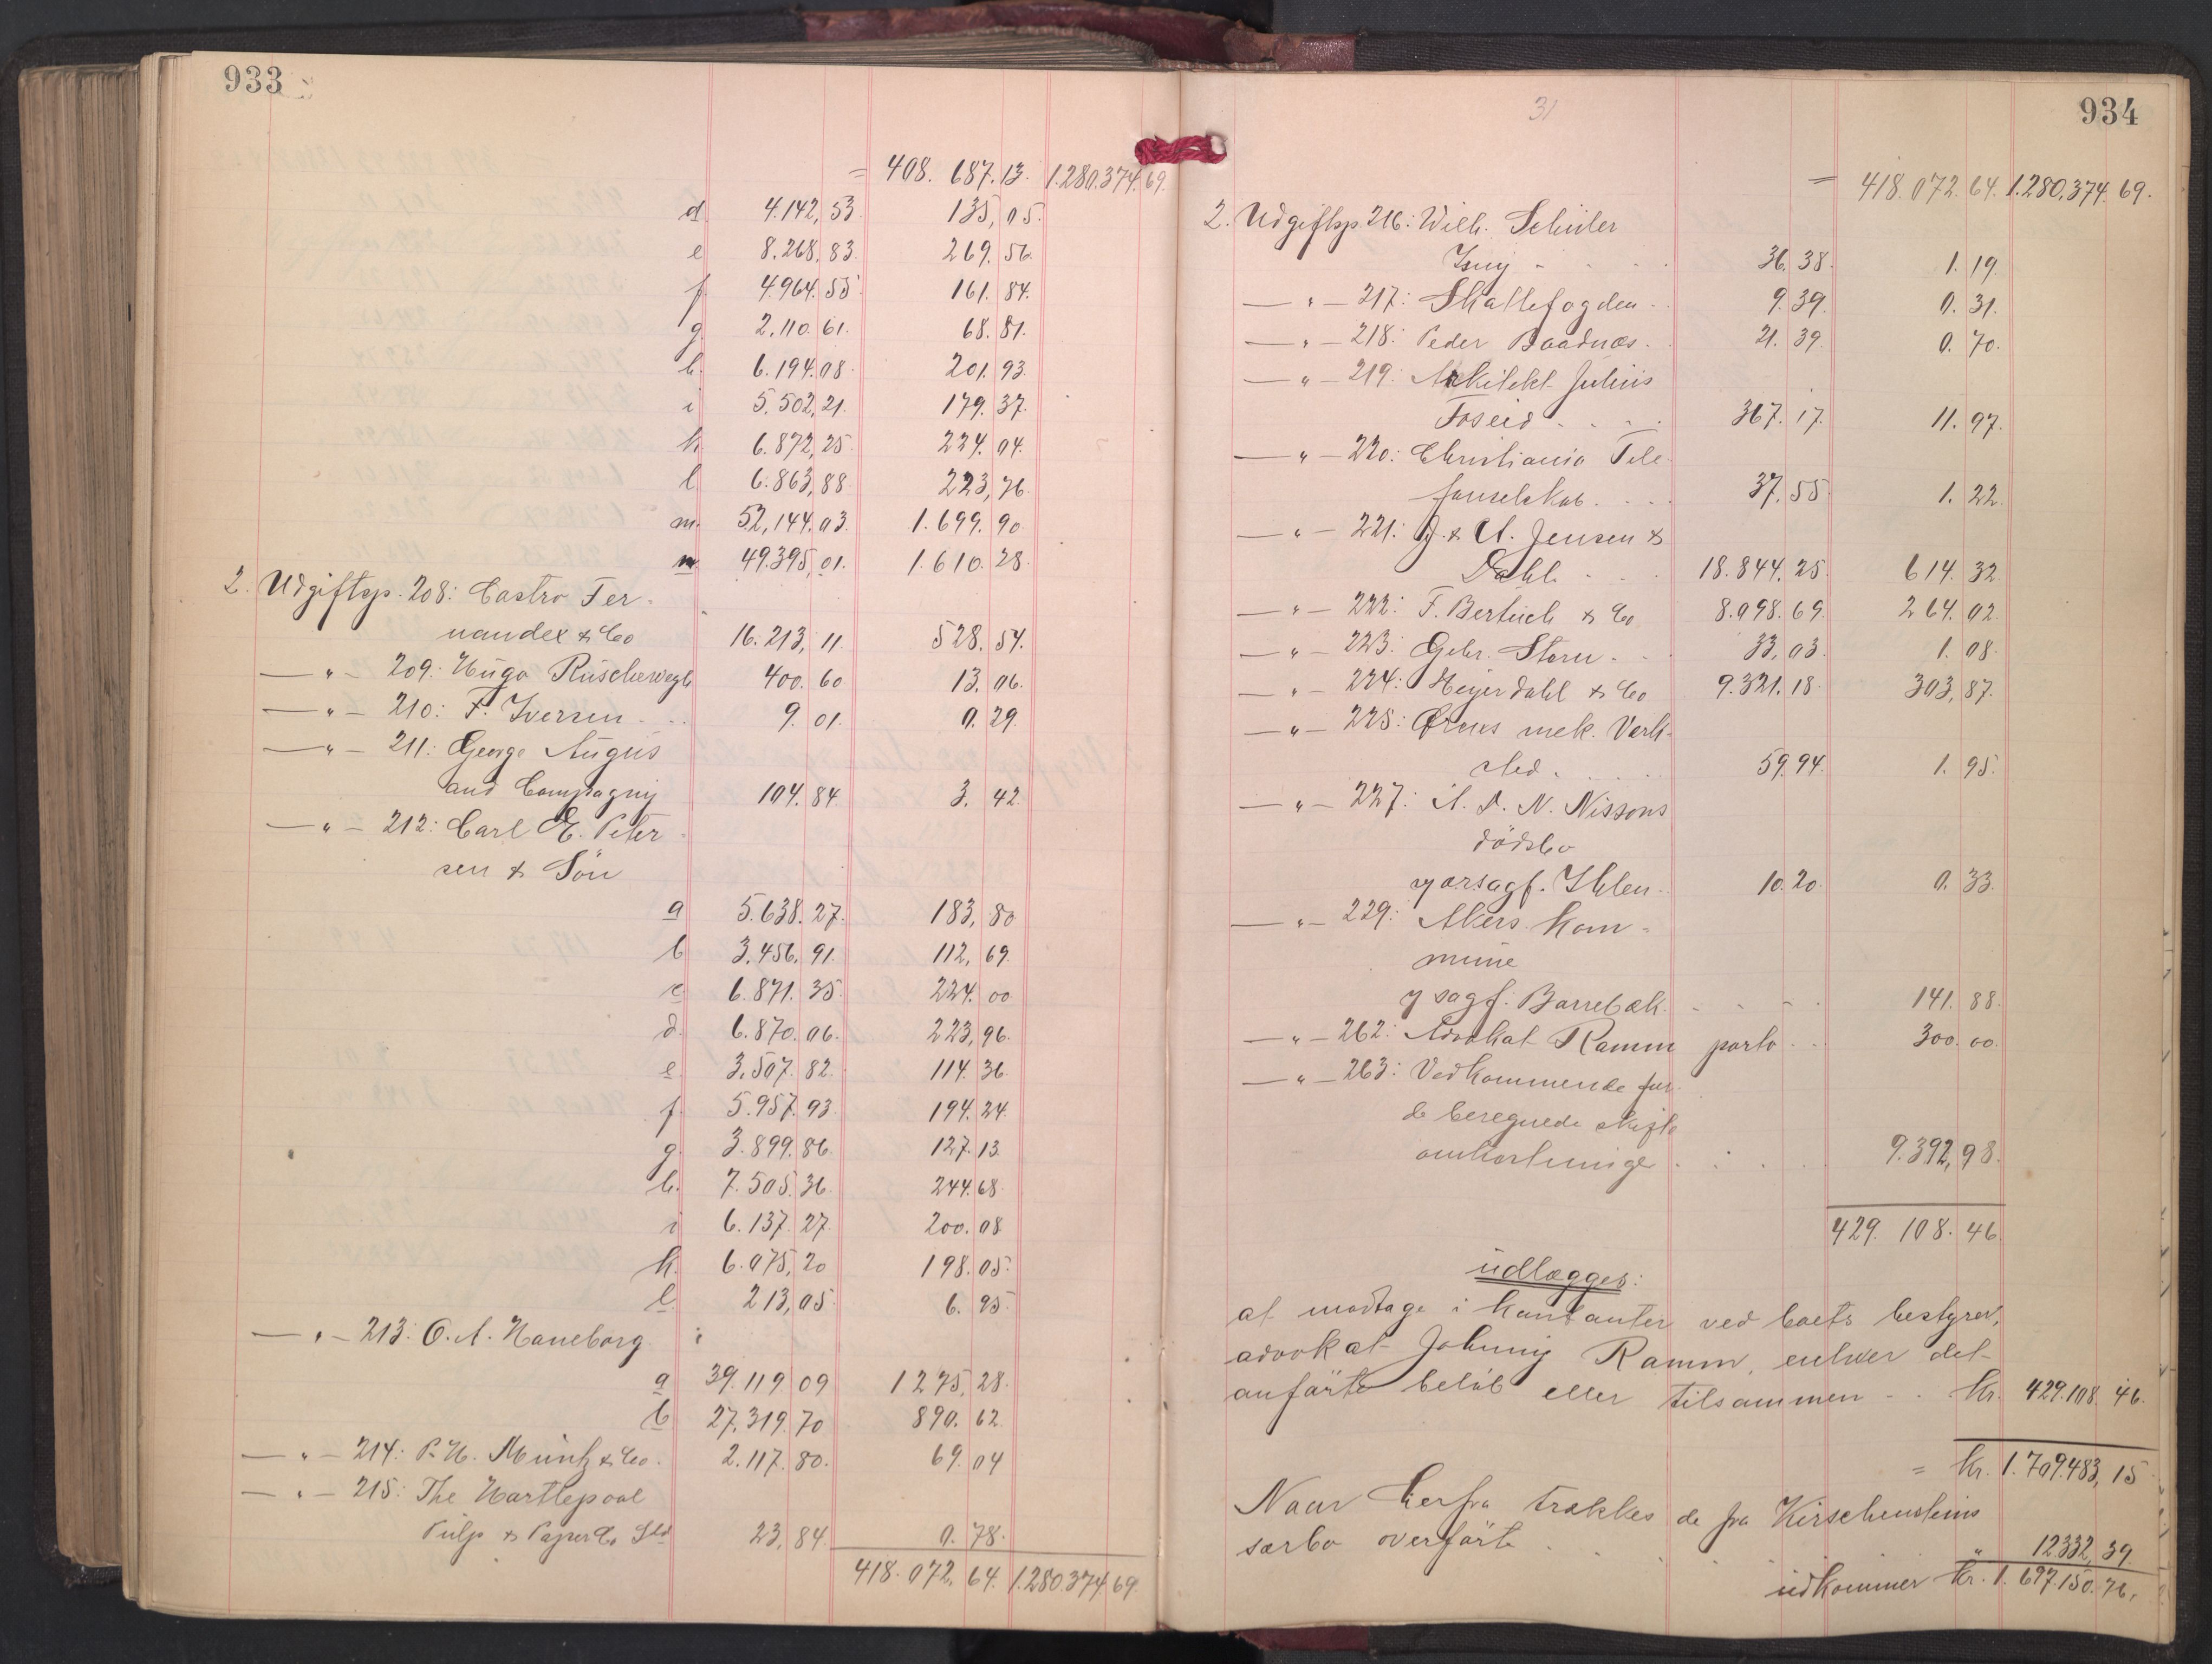 933
= 408.687.13. 1.280.374.69.
d 4.142,53. 135,05.
e 8.268,83. 269.56.
f. 4.964.55. 161.84.
g. 2.110.61. 68.81.
h. 6.194.08. 201.93.
i 5.502,21. 179.37.
k. 6.872,25. 224.04.
l 6.863,88. 223,76.
m. 52,144.03. 1.699.90.
n. 49.395,01. 1.610.28.
2. Udgiftsp. 208: Castro Fer-
nandex & Co 16.213,11. 528.54.
— " — 209: Hugo Rüscheweyh 400.60 13.06.
— " — 210: F. Iversen 9.01. 0.29.
— " — 211: George Angus
and Compagny 104.84. 3.42.
— " — 212: Carl E. Peter-
sen & Sön
a 5.638.27. 183,80
b 3.456,91. 112,69.
c 6.871.35. 224.00
d. 6.870.06. 223,96.
e 3.507.82. 114.36.
f. 5.957.93. 194.24.
g. 3.899.86. 127.13.
h. 7.505.36. 244.68.
i 6.137.27. 200.08
k. 6.075,20 198.05.
l. 213,05 6.95.
— " — 213: O. A. Haneborg
a 39.119 09 1275,28.
b 27,319,70 890.62
— " — 214: P. H. Müntz & Co. 2.117.80. 69.04
— " — 215: The Hartlepool
Pulp & Paper Co Ltd 23,84. 0.78.
418.072.64. 1.280.374.69.
31
934
= 418.072.64. 1.280,374.69.
2. Udgiftsp. 216: Wilh. Schüler
Isny 36.38. 1.19.
— " — 217: Skattefogden 9.39. 0.31.
— " — 218: Peder Baadnæs. 21.39. 0.70.
— " — 219: Arkitekt Julius
Foseid 367.17. 11.97.
— " — 220: Christiania Tele-
fonselskab. 37.55 1.22.
— " — 221: J. & A. Jensen &
Dahl 18.844.25. 614.32.
— " — 222: F. Bertuch & Co 8.098.69. 264.02.
— " — 223: Gebr. Storn. 33,03. 1.08.
— " — 224: Heyerdahl & Co 9.321.18. 303,87.
— " — 225: Ørens mek. Verk-
sted. 59.94. 1.95.
— " — 227: A. D. N. Nissons
dödsbo
v/ orsagf. Ihlen. 10.20. 0.33.
— " — 229: Akers Kom-
mune
v/ sagf. Barrebæk. 141.88.
— " — 262: Advokat Ramm porto 300.00.
— " — 263: Vedkommende for
de beregnede skifte
omkostninger 9.392,98.
429.108.46.
udlægges:
at modtage i kontanter ved boets bestyrer,
advokat Johnny Ramm, enhver det
anførte beløb eller tilsammen Kr. 429.108.46.
= Kr. 1.709.483,15
Naar herfra trækkes de fra Kirschensteins
særbo overførte " 12332,39.
udkommer Kr. 1.697.150.76.